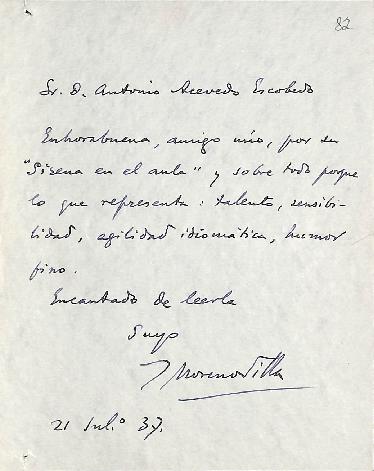 82
Sr. D. Antonio Acevedo Escobedo
Enhorabuena, amigo mío, por su
"Sirena en el aula" y sobre todo porque
lo que representa: talento, sensibi-
lidad, agilidad idiomática, humor
fino.
Encantado de leerla
Suyo
J Moreno Villa
21 Jul.º 37.